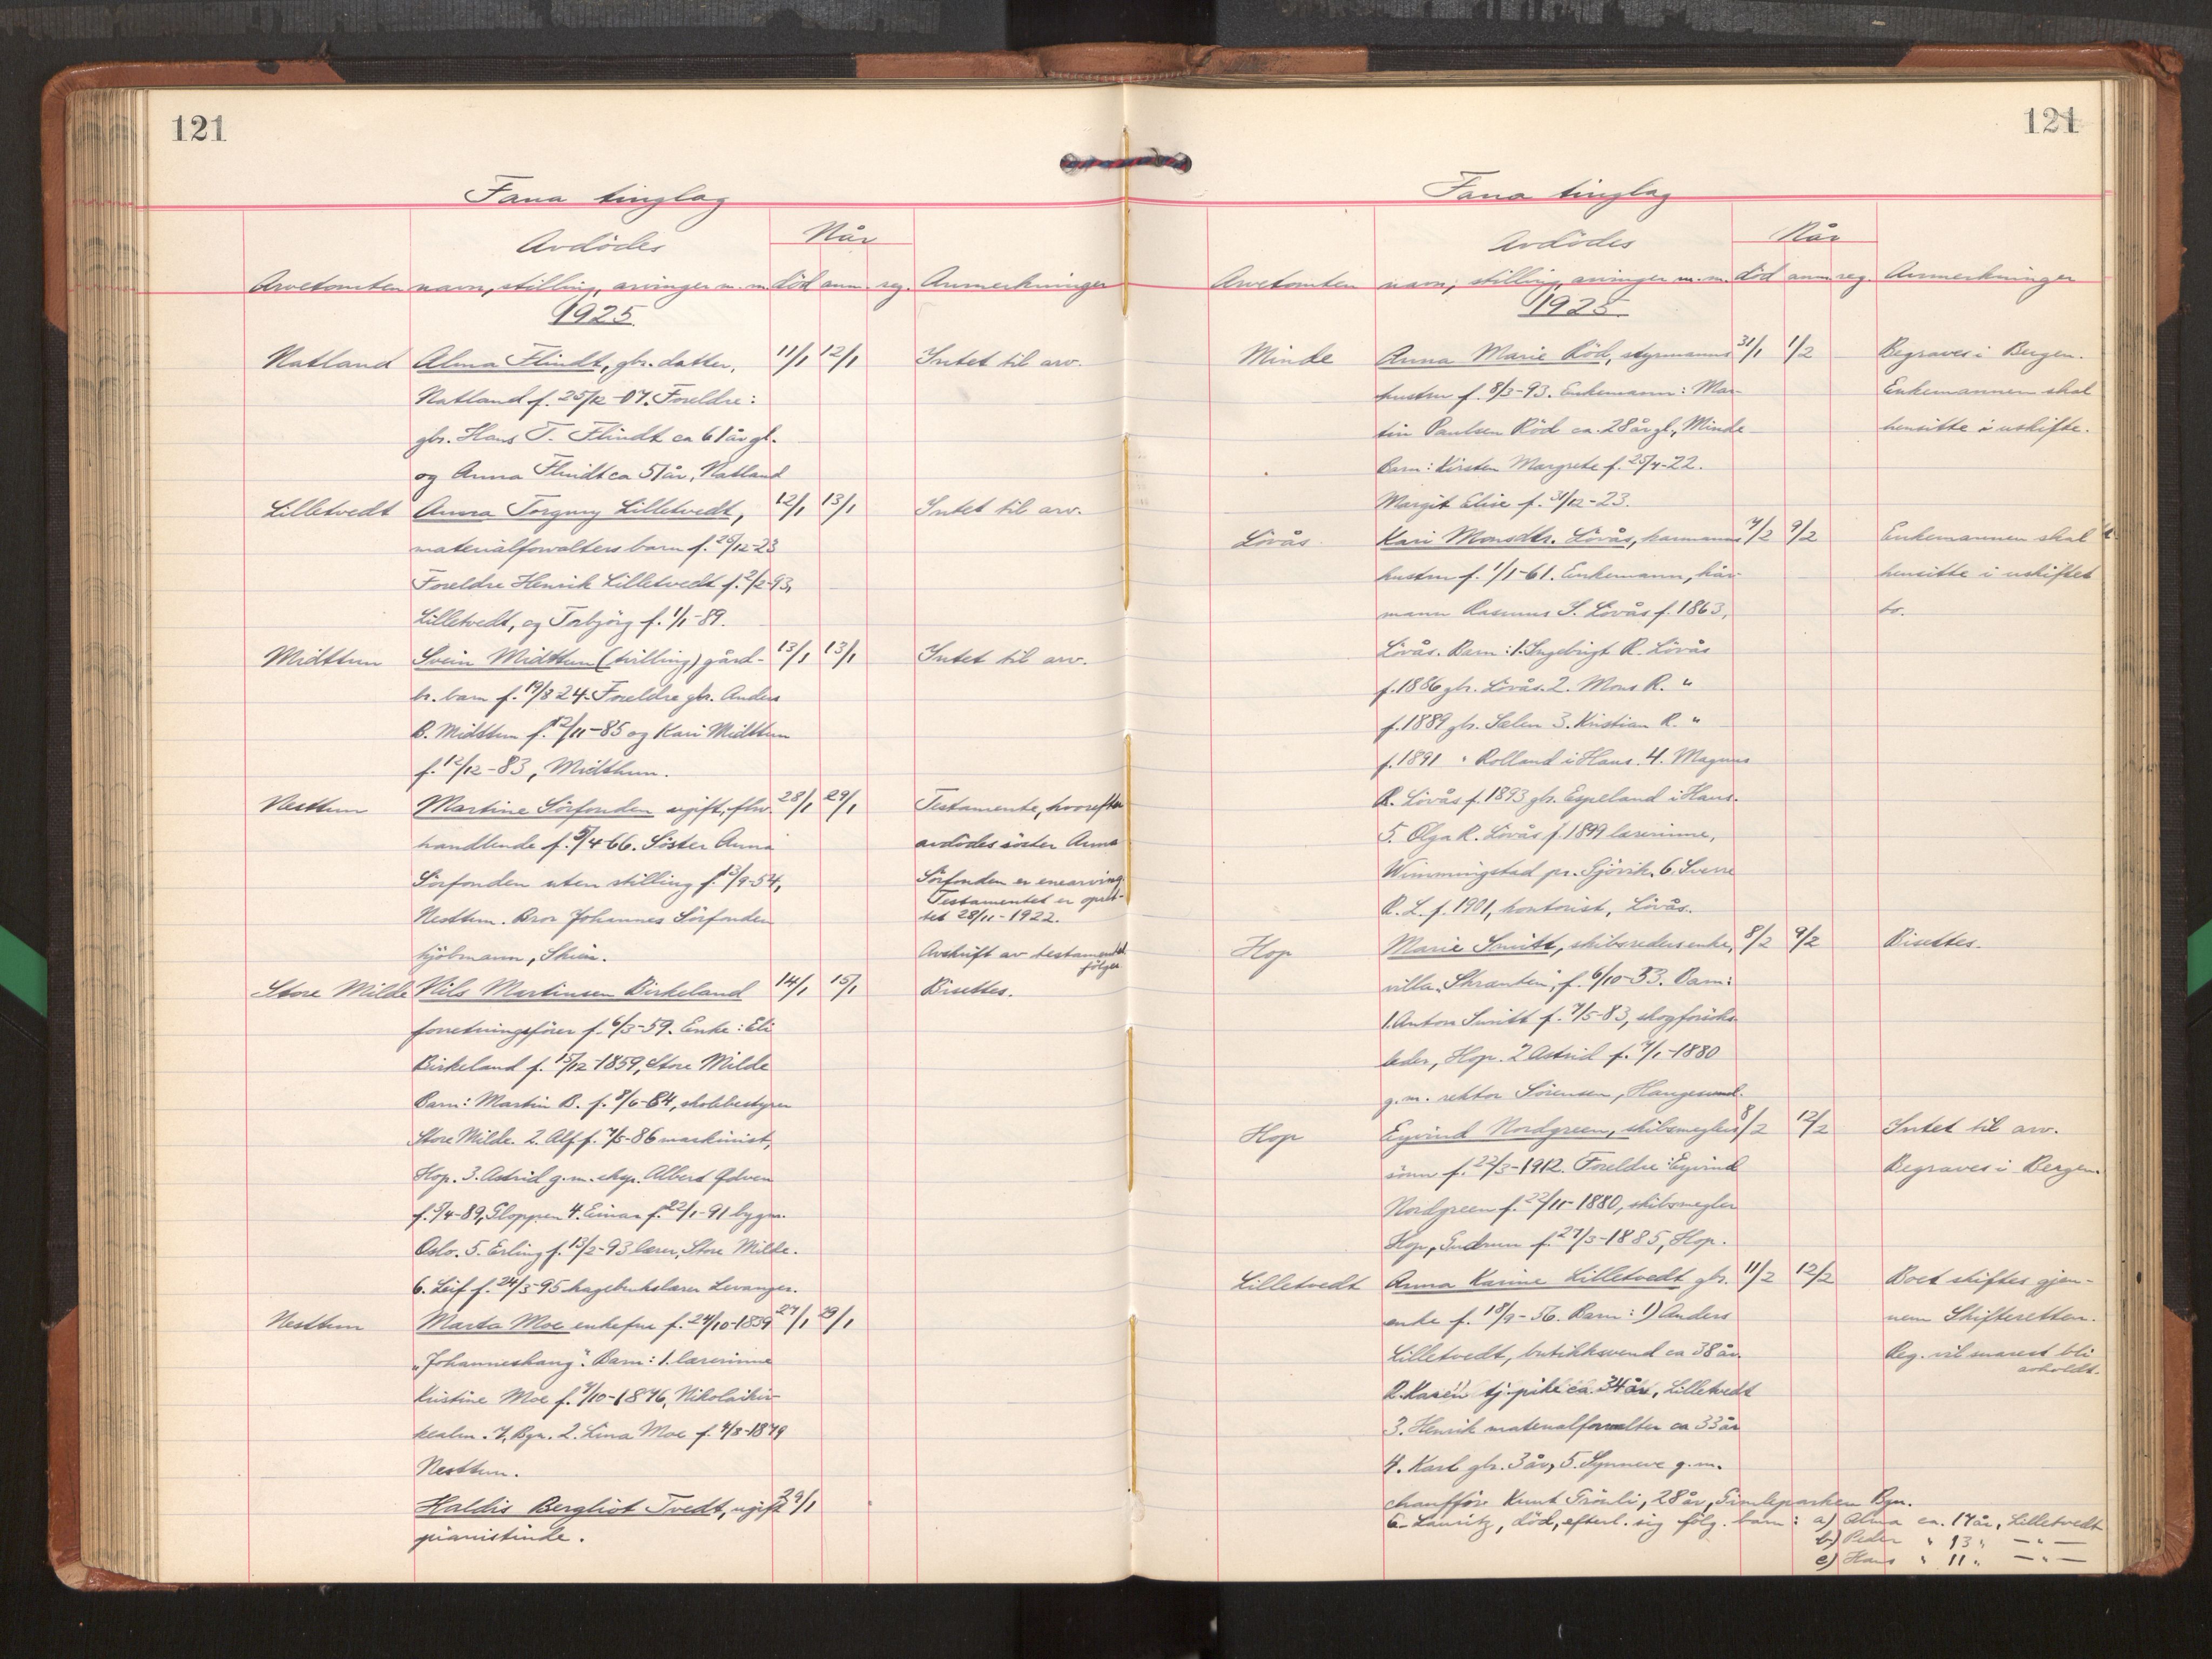 121
Fana tinglag
Avdödes
Når
Arvetomten navn, stilling, arvinger m. m. död anm. reg. Anmerkninger
1925
Natland Alma Flindt, gbr. datter, 11/1 12/1 Intet til arv.
Natland f. 25/12-07. Foreldre:
gbr. Hans T. Flindt ca 61 år gl.
og Anna Flindt ca 51 år, Natland
Lilletvedt Anna Torguny Lilletvedt, 12/1 13/1 Intet til arv.
materialforvalters barn f. 25/12-23
Foreldre Henrik Lilletvedt f. 2/2-93,
Lilletvedt, og Torbjörg f. 1/1-89.
Midttun Svein Midttun (tvilling) gård- 13/1 13/1 Intet til arv.
br. barn f. 19/8 24. Foreldre gbr. Anders
B. Midttun f. 12/11-85 og Kari Midttun
f. 12/12-83, Midthun.
Nesttun Martine Sörfonden ugift, fhv. 28/1 29/1 Testamente, hvorefter
handlende f. 5/4 66. Söster Anna avdödes söster Anna
Sörfonden uten stilling f. 13/9-54, Sörfonden er enearving.
Nesttun. Bror Johannes Sörfonden Testamentet er opret-
tet 28/11-1922.
kjöbmann, Skien. Avskrift av testamentet
fölger
Store Milde Nils Martinsen Birkeland 14/1 15/1 Bisettes.
forretningsförer f. 6/3-59. Enke: Eli
Birkeland f. 15/12-1859, Store Milde
Barn: Martin B. f. 8/6-84, skolebestyrer
Store Milde. 2. Alf f. 7/5-86 maskinist,
Hop. 3. Astrid g. m. eksp. Albert
f. 5/4-89, Gloppen 4. Einar f. 22/1-91 bygm.
Oslo. 5. Erling f. 13/2-93 lærer, Store Milde.
6. Leif f. 24/3-95 hagebrukslærer Levanger.
Nesttun Marta Moe enkefru f. 24/10-1859 27/1 29/1
"Johanneshaug". Barn: 1. lærerinne
Kristine Moe f. 7/10-1876, Nikolaikir-
kealm. 7, Bgn. 2. Lina Moe f. 4/8-1879
Nesttun.
Haldis Bergliot Tvedt, ugift 29/1
pianistinde.
121
Fana tinglag
Avdödes
Når
Arvetomten navn, stilling, arvinger m. m. död anm reg. Anmerkninger
1925
Minde Anna Marie Röd, styrmanns 31/1 1/2 Begraves i Bergen.
hustru f. 8/3-93. Enkemann: Mar- Enkemannen skal
tin Paulsen Röd ca. 28 år gl., Minde hensitte i uskifte.
Barn: Kirsten Margrete f. 25/4-22.
Margit Elise f. 31/12-23.
Lövås. Kari Monsdtr. Lövås, kårmanns 7/2 9/2 Enkemannen skal
hustru f. 1/1-61. Enkemann, kår- hensitte i uskiftet
mann Rasmus S. Lövås f. 1863, bo.
Lövås. Barn: 1. Ingebrigt R. Lövås
f. 1886 gbr. Lövås. 2. Mons R. "
f. 1889 gbr. Sælen 3. Kristian R. "
f. 1891 " Rolland i Haus. 4. Magnus
R. Lövås f. 1893 gbr. Espeland i Haus.
5. Olga R. Lövås f. 1899 lærerinne,
Wimmingstad pr. Gjövik. 6. Sverre
R. L. f. 1901, kontorist, Lövås.
Hop Marie Smitt, skibsreders enke, 8/2 9/2 Bisettes.
villa "Skrænten", f. 6/10-53. Barn:
1. Anton Smitt f. 7/5-83, skogforsöks-
leder, Hop. 2 Astrid f. 7/1-1880
g. m. rektor Sörensen, Haugesund.
Hop Eyvind Nordgreen, skibsmeglers 8/2 12/2 Intet til arv.
sönn f. 22/3-1912. Foreldre: Eyvind Begraves i Bergen.
Nordgreen f. 22/11-1880, skibsmegler
Hop, Gudrun f. 27/3-1885, Hop.
Lilletvedt Anna Karine Lilletvedt gbr. 11/2 12/2 Boet skiftes gjen-
enke f. 18/9-56. Barn: 1) Anders nem Skifteretten.
Lilletvedt, butikksvend ca 38 år. Reg. vil snarest bli
avholdt.
2. Karen tj. pike ca. 34 år, Lilletvedt
3. Henrik materialforvalter ca 33 år
4. Karl gbr. 3 år, 5. Synneve g. m.
chafför Knut Trönli, 28 år, Gimleparken Bgn.
6. Lauritz, död, efterl. sig fölg. barn: a) Alma ca. 17 år, Lilletvedt
b) Peder " 13 " — " —
c) Hans " 11 " — " —